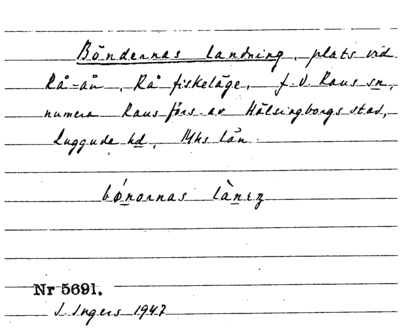 Böndernas landning, plats vid
Rå-ån, Rå fiskeläge, f.d. Raus sn,
numera Raus förs. av Hälsingborgs stad,
Luggude hd, Mhs län.
bǿnornas làneŋ
Nr 5691.
I. Ingers 1947